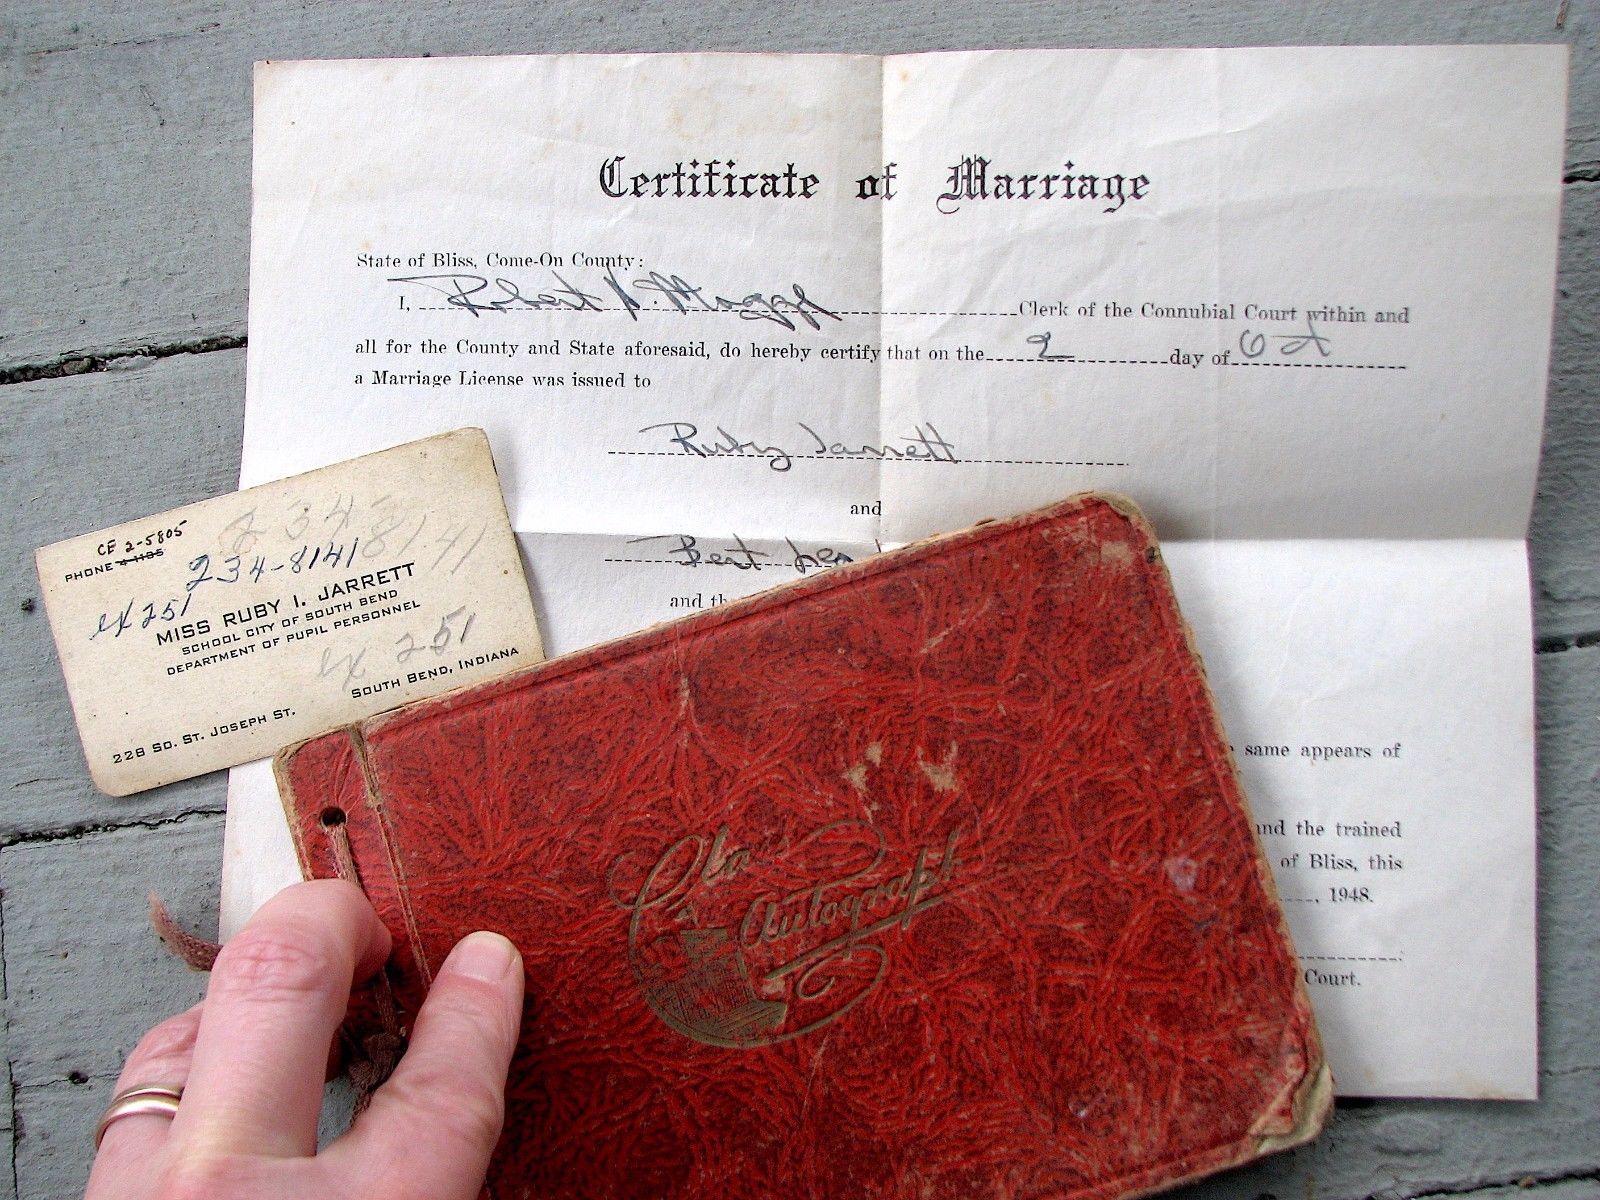 Certificate of Marriage
State of Bliss, Come-On County:
I, Robert Clerk of the Connubial Court within and
all for the County and State aforesaid, do hereby certify that on the 2 day of Oct
a Marriage License was issued to
Ruby Jarrett
and
Bert
and th
same appears of
and the trained
of Bliss, this
, 1948.
Court.
CE 2-5805
PHONE 4-1195
234-8141
234-8141
ex 251
MISS RUBY I. JARRETT
SCHOOL CITY OF SOUTH BEND
DEPARTMENT OF PUPIL PERSONNEL
ex 251
228 SO. ST. JOSEPH ST.
SOUTH BEND, INDIANA
Class
Autograph